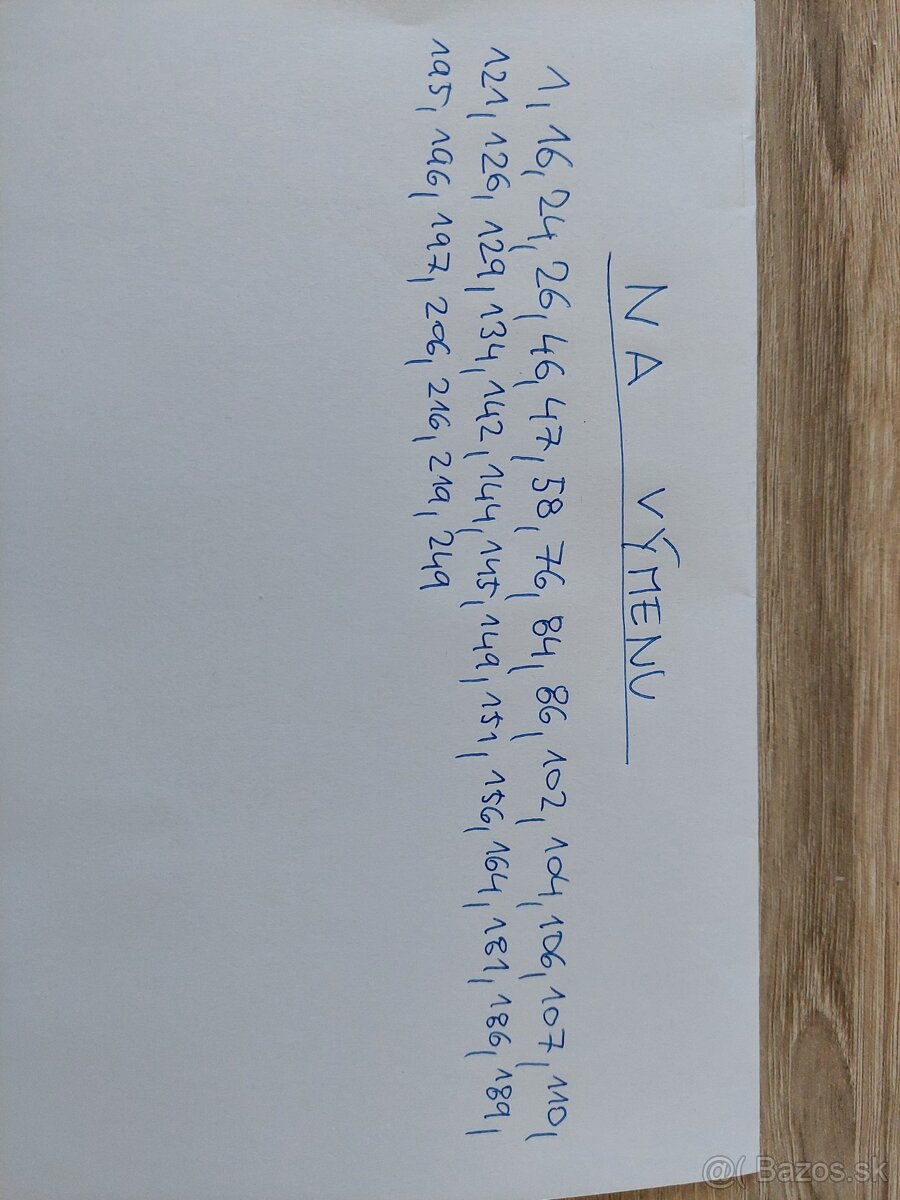 NA VÝMENU
1, 16, 24, 26, 46, 47, 58, 76, 84, 86, 102, 104, 106, 107, 110,
121, 126, 129, 134, 142, 144, 145, 149, 151, 156, 164, 181, 186, 189,
195, 196, 197, 206, 216, 219, 249
@( Bazos.sk